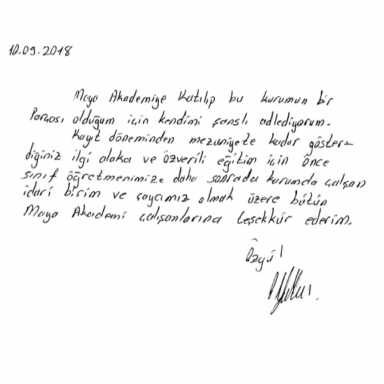 10.09.2018
Maya Akademiye Katılıp bu kurumun bir
Parçası olduğum için kendimi şanslı adlediyorum.
Kayıt döneminden mezuniyete kadar göster-
diğiniz ilgi alaka ve özverili eğitim için önce
sınıf öğretmenimize daha sonrada kurumda çalışan
idari birim ve çaycımız olmak üzere bütün
Maya Akademi çalışanlarına teşekkür ederim.
Özgül